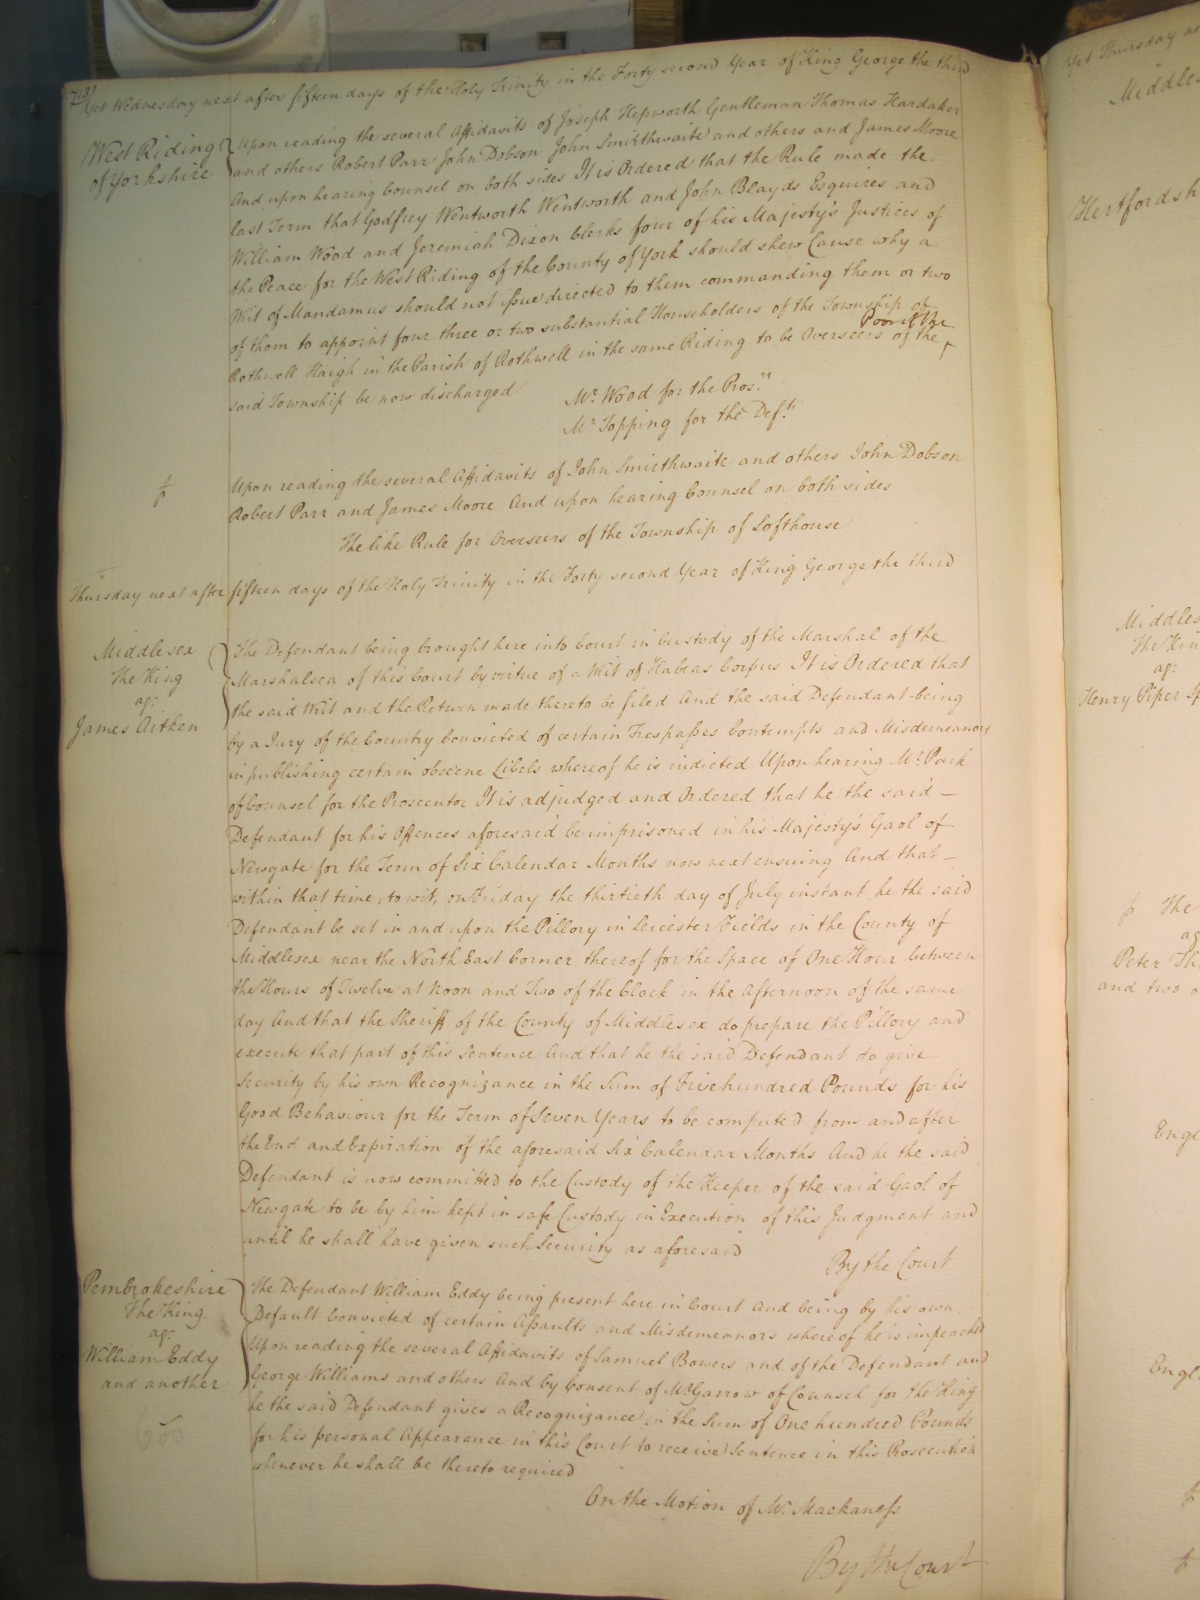 713
Yet Wednesday next after fifteen days of the Holy Trinity in the Forty second Year of King George the third
West Riding
of Yorkshire
Upon reading the several Affidavits of Joseph Hepworth Gentleman Thomas Hardaker
and others Robert Parr John Dobson John Smirthwaite and others and James Moore
And upon hearing Counsel on both sides It is Ordered that the Rule made the
last Term that Godfrey Wentworth Wentworth and John Blayds Esquires and
William Wood and Jeremiah Dixon Clerks four of his Majesty's Justices of
the Peace for the West Riding of the County of York should shew Cause why a
Writ of Mandamus should not issue directed to them commanding them or two
of them to appoint four three or two substantial Householders of the Township of
Rothwell Haigh in the Parish of Rothwell in the same Riding to be Overseers of the
Poor of the
said Township be now discharged
Mr. Wood for the Pros:rs
Mr. Topping for the Def:ts
Upon reading the several Affidavits of John Smirthwaite and others John Dobson
Robert Parr and James Moore And upon hearing Counsel on both sides
The like Rule for Overseers of the Township of Lofthouse
Thursday next after fifteen days of the Holy Trinity in the Forty second Year of King George the third
Middlesex
The King
ag:
James Aitken
The Defendant being brought here into Court in Custody of the Marshal of the
Marshalsea of this Court by virtue of a Writ of Habeas Corpus It is Ordered that
the said Writ and the Return made thereto be filed And the said Defendant being
by a Jury of the Country Convicted of certain Trespasses Contempts and Misdemeanors
in publishing certain obscene Libels whereof he is indicted Upon hearing Mr. Park
of Counsel for the Prosecutor It is adjudged and Ordered that he the said
Defendant for his Offences aforesaid be imprisoned in his Majesty's Gaol of
Newgate for the Term of Six Calendar Months now next ensuing And that
within that time, to wit, on Friday the thirtieth day of July instant he the said
Defendant be set in and upon the Pillory in Leicester Fields in the County of
Middlesex near the North East Corner thereof for the Space of One Hour between
the Hours of Twelve at Noon and Two of the Clock in the Afternoon of the same
day And that the Sheriff of the County of Middlesex do prepare the Pillory and
execute that part of this Sentence And that he the said Defendant do give
Security by his own Recognizance in the Sum of Five hundred Pounds for his
Good Behaviour for the Term of Seven Years to be computed from and after
the End and Expiration of the aforesaid Six Calendar Months And he the said
Defendant is now committed to the Custody of the Keeper of the said Gaol of
Newgate to be by him kept in safe Custody in Execution of this Judgment and
until he shall have given such Security as aforesaid
By the Court
Pembrokeshire
The King
ag:
William Eddy
and another
The Defendant William Eddy being present here in Court And being by his own
Default Convicted of certain Assaults and Misdemeanors whereof he is impeached
Upon reading the several Affidavits of Samuel Bowers and of the Defendant and
George Williams and others And by Consent of Mr. Garrow of Counsel for the King
he the said Defendant gives a Recognizance in the Sum of One hundred Pounds
for his personal Appearance in this Court to receive Sentence in this Prosecution
whenever he shall be thereto required
On the Motion of Mr. Mackaness
By the Court
Yet Thursday
Middles
Hertfordsh
Middles
The Kin
ag:
Henry Piper
The
Peter Th
and two o
Engl
Engl